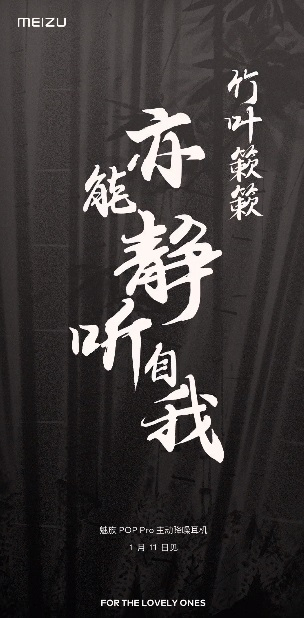 MEIZU
竹叶簌簌
亦能静听自我
魅族 POP Pro 主动降噪耳机
1 月 11 日见
FOR THE LOVELY ONES